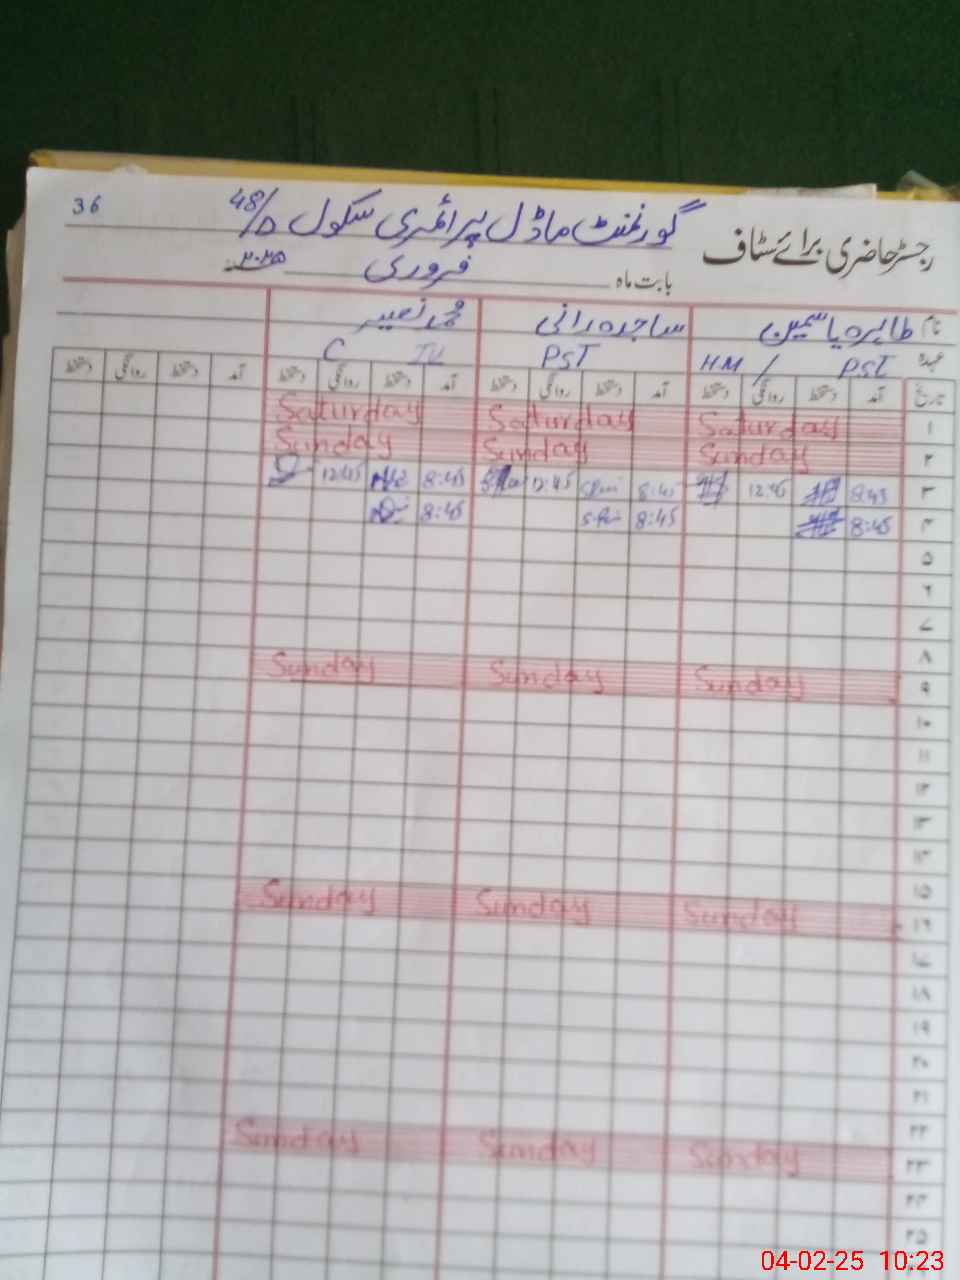 36
گورنمنٹ ماڈل پرائمری سکول 48/D
رجسٹر حاضری برائے سٹاف
بابت ماہ فروری ۲۰۲۵
نام طاہرہ یاسمین ساجدہ رانی محمد نصیر
عہدہ PST / HM PST C IV
تاریخ آمد دستخط روانگی دستخط آمد دستخط روانگی دستخط آمد دستخط روانگی دستخط آمد دستخط روانگی دستخط
۱ Saturday Saturday Saturday
۲ Sunday Sunday Sunday
۳ 8:45 12:45 8:45 12:45 8:45 12:45
۴ 8:45 8:45 8:45
۵
۶
۷
۸
۹ Sunday Sunday Sunday
۱۰
۱۱
۱۲
۱۳
۱۴
۱۵
۱۶ Sunday Sunday Sunday
۱۷
۱۸
۱۹
۲۰
۲۱
۲۲
۲۳ Sunday Sunday Sunday
۲۴
۲۵
04-02-25 10:23